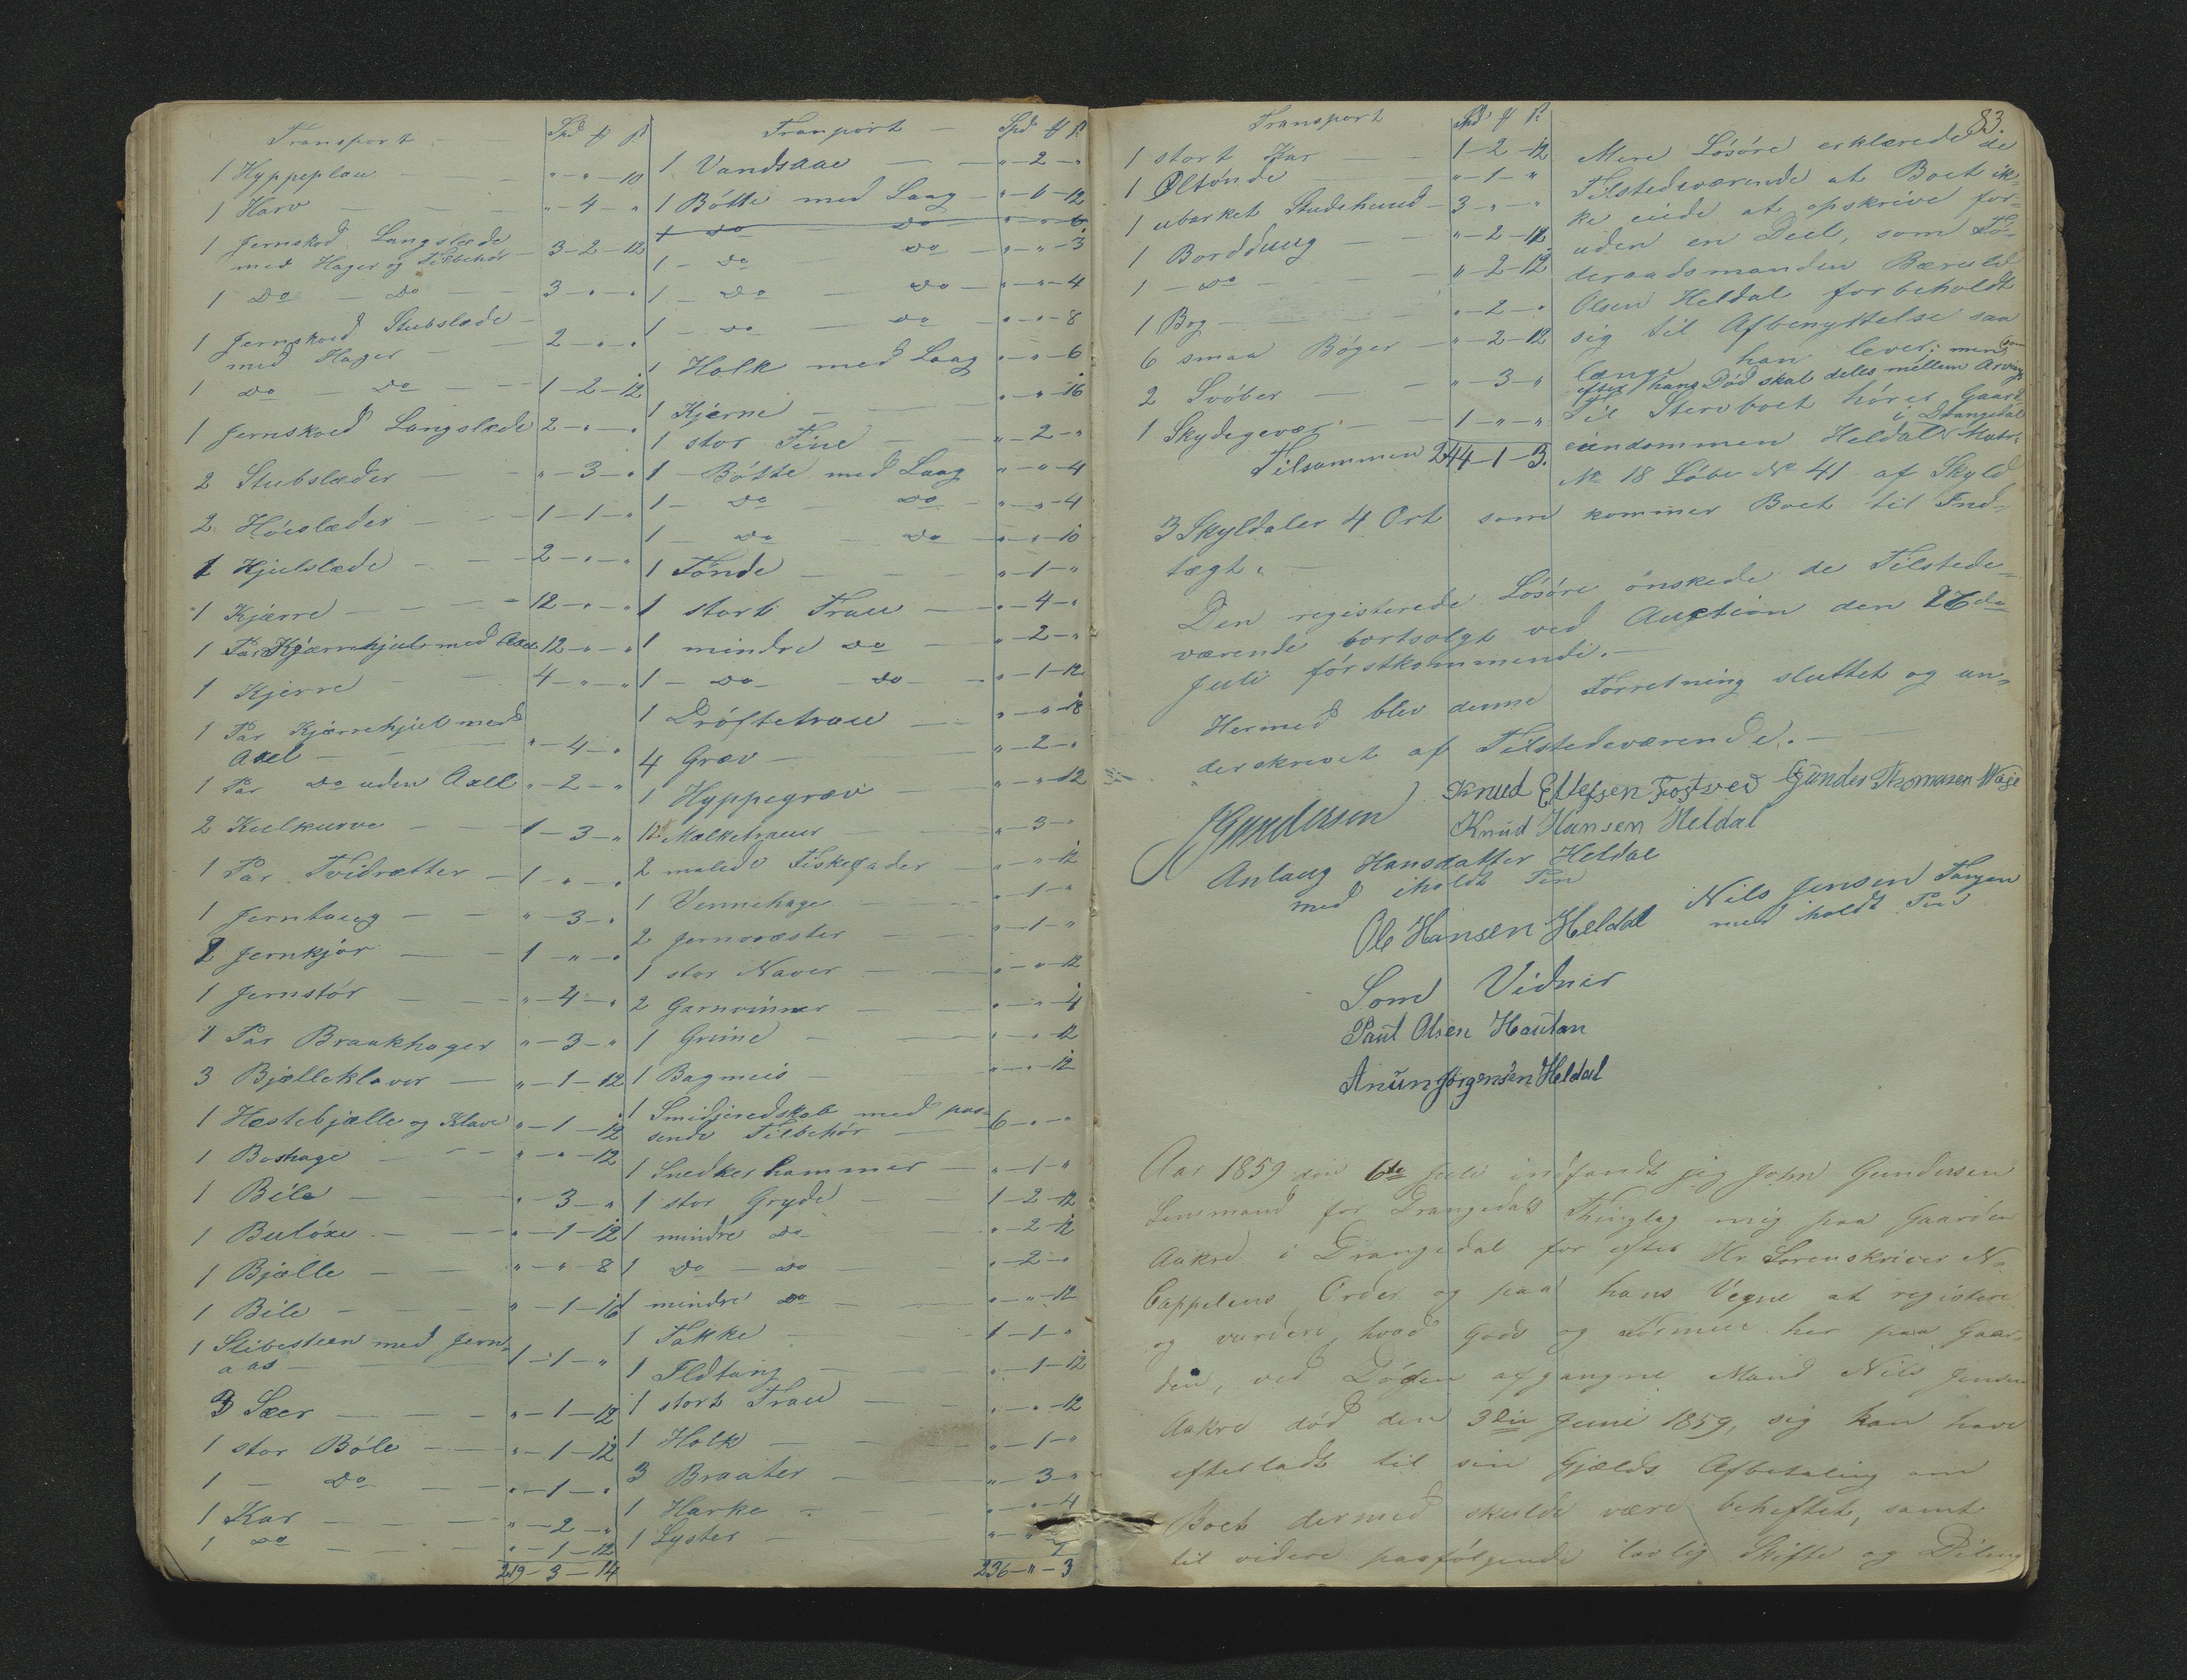 Transport Spd ₰ ß
1 Hyppeplau " - " - 10
1 Harv " - 4 - "
1 Jernskod Langslæde
med Hager og Tilbehør 3 - 2 - 12
1 Do - Do 3 - " - "
1 Jernskoed Stubslæde
med Hager 2 - " - "
1 Do Do 1 - 2 - 12
1 Jernskoed Langslæde 2 - " - "
2 Stubslæder " - 3 - "
2 Høislæder 1 - 1 - "
1 Hjulslæde 2 - " - "
1 Kjærre 12 - " - "
1 Par Kjærrehjul med Axel 12 - " - "
1 Kjerre 4 - " - "
1 Par Kjærrehjul med
Axel " - 4 - "
1 Par Do uden Axll " - 2 - "
2 Kulkurve 1 - 3 - "
1 Par Tvidrætter 1 - " - "
1 Jerntaug " - 3 - "
2 Jernkjør 1 - " - "
1 Jernstør " - 4 - "
1 Par Braakhager " - 3 - "
3 Bjælleklaver " - 1 - 12
1 Hestebjælle og Klave " - 1 - 12
1 Boshage " - " - 12
1 Bile " - 3 - "
1 Buløxe " - 1 - 12
1 Bjælle " - " - 8
1 Bile " - 1 - 16
1 Slibesteen med Jern-
aas 1 - 1 - "
3 Sæer " - 1 - 12
1 stor Bøle " - 1 - 12
1 - Do " - 1 - "
1 Kar " - 2 - "
1 Do " - 1 - 12
219 - 3 - 14
Tranport Spd ₰ ß
1 Vandsaae " - 2 - "
1 Bøtte med Laag " - 0 - 12
1 Do Do " - " - 6
1 - Do Do " - " - 3
1 - Do Do " - " - 4
1 - Do Do " - " - 8
1 Holk med Laag " - " - 6
1 Kjerne " - " - 16
1 stor Tine " - 2 - "
1 - Bøtte med Laag " - " - 4
1 - Do Do " - " - 4
1 - Do Do " - " - 10
1 Tønde " - 1 - "
1 stort Trau " - 4 - "
1 mindre Do " - 2 - "
1 - Do - Do " - 1 - 12
1 Drøftetrau " - " - 18
4 Græv " - 2 - "
1 Hyppegræv " - " - 12
12 Mælketrauer " - 3 - "
2 malede Fiskefader " - " - 12
1 Vennehage " - 1 - "
2 Jernvæster " - 1 - "
1 stor Naver " - " - 12
2 Garnvinner " - " - 4
1 Grime " - " - 12
1 Bagmeis " - " - 12
1 Smidjeredskab med pas-
sende Tilbehør 6 - " - "
1 Snedkerhammer " - 1 - "
1 stor Gryde 1 - 2 - 12
1 mindre Do " - 2 - 12
1 Do - Do " - 2 - "
1 mindre Do " - " - 12
1 Takke 1 - 1 - "
1 Ildtang " - 1 - 12
1 stort Trau " - " - 12
1 Holk " - 1 - "
3 Braater " - 3 - "
1 Harke " - " - 4
1 Lyster " - "
236 - " - 3
83.
Transport Spd ₰ ß
1 stort Kar 1 - 2 - 12
1 Øltønde " - 1 - "
1 ubarket Studehuud 3 - " - "
1 Borddúug " - 2 - 12
1 - Do " - 2 - 12
1 Bog " - 2 - "
6 smaa Bøger " - 2 - 12
2 Svøber " - 3 - "
1 Skydegevær 1 - " - "
Tilsammen 244 - 1 - 3.
Mere Løsøre erklærede de
Tilstedeværende at Boet ik-
ke eiede at opskrive for-
uden en Deel, som Fø-
deraadsmanden Bærulv
Olsen Heldal forbeholdt
sig til Afbenyttelse saa
længe han lever; men som
efter hans Død skal deles mellem Arving.
Til Stervboet hører Gaard-
eiendommen Heldal i Drangedal Matr.
No 18 Løbe No 41 af Skyld
3 Skyldaler 4 Ort som kommer Boet til Ind-
tægt.
Den registerede Løsøre ønskede de Tilstede-
værende bortsolgt ved Auction den 26de
Juli førstkommende.
Hermed blev denne Forretning sluttet og un-
derskrevet af Tilstedeværende.
JGundersen Knud Ellefsen Fostved Gunder Thomasen Wøje
Knud Hansen Heldal
Anlaug Hansdatter Heldal
med iholdt Pen
Nils Jensen Tangen
med iholdt Pen
Ole Hansen Heldal
Som Vidner
Paul Olsen Hautan
Anún Jørgensen Heldal
Aar 1859 den 6te Juli indfandt jeg John Gundersen
Lensmand for Drangedals Thinglag mig paa Gaarden
Aakre i Drangedal for efter Hr. Sorenskriver N.
Cappelens Ordre og paa hans Vegne at registere
og vurdere, hvad Gods og Formue her paa Gaar-
den, ved Døden afgangne Mand Nils Jensen
Aakre død den 3die Juni 1859, sig kan have
efterladt til sin Gjælds Afbetaling om
Boet dermed skulde være beheftet, samt
til videre paafølgende lovlig Skifte og Deling